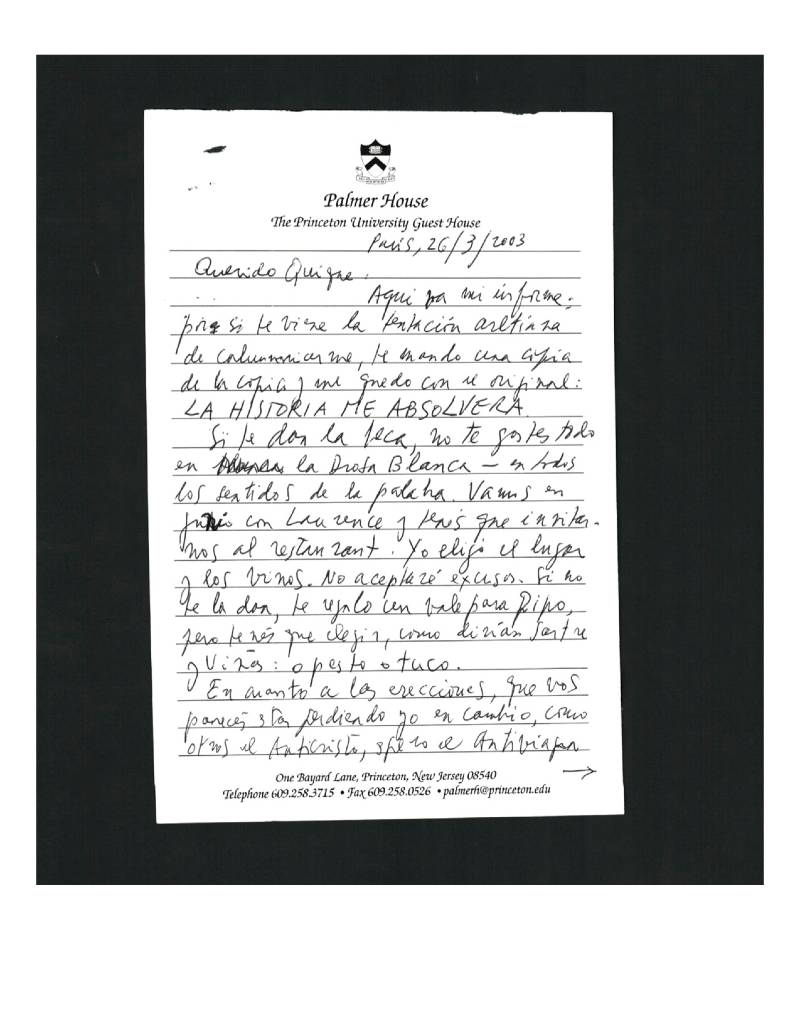 Palmer House
The Princeton University Guest House
París, 26/3/2003
Querido Quique:
Aquí va mi informe:
por si te viene la tentación
de calumniarme, te mando una copia
de la copia y me quedo con el original:
LA HISTORIA ME ABSOLVERA.
Si te dan la beca, no te gastes todo
en la Diosa Blanca – en todos
los sentidos de la palabra. Vamos en
junio con Laurence y tenés que invitar-
nos al restaurant. Yo elijo el lugar
y los vinos. No aceptaré excusas. Si no
te la dan, te regalo un vale para Pipo,
pero tenés que elegir, como dirían Sartre
y Viñas: o pesto o tuco.
En cuanto a las erecciones, que vos
parecés estar perdiendo yo en cambio, como
otros el Anticristo, espero el Antiviagra
→
One Bayard Lane, Princeton, New Jersey 08540
Telephone 609.258.3715 • Fax 609.258.0526 • palmerh@princeton.edu